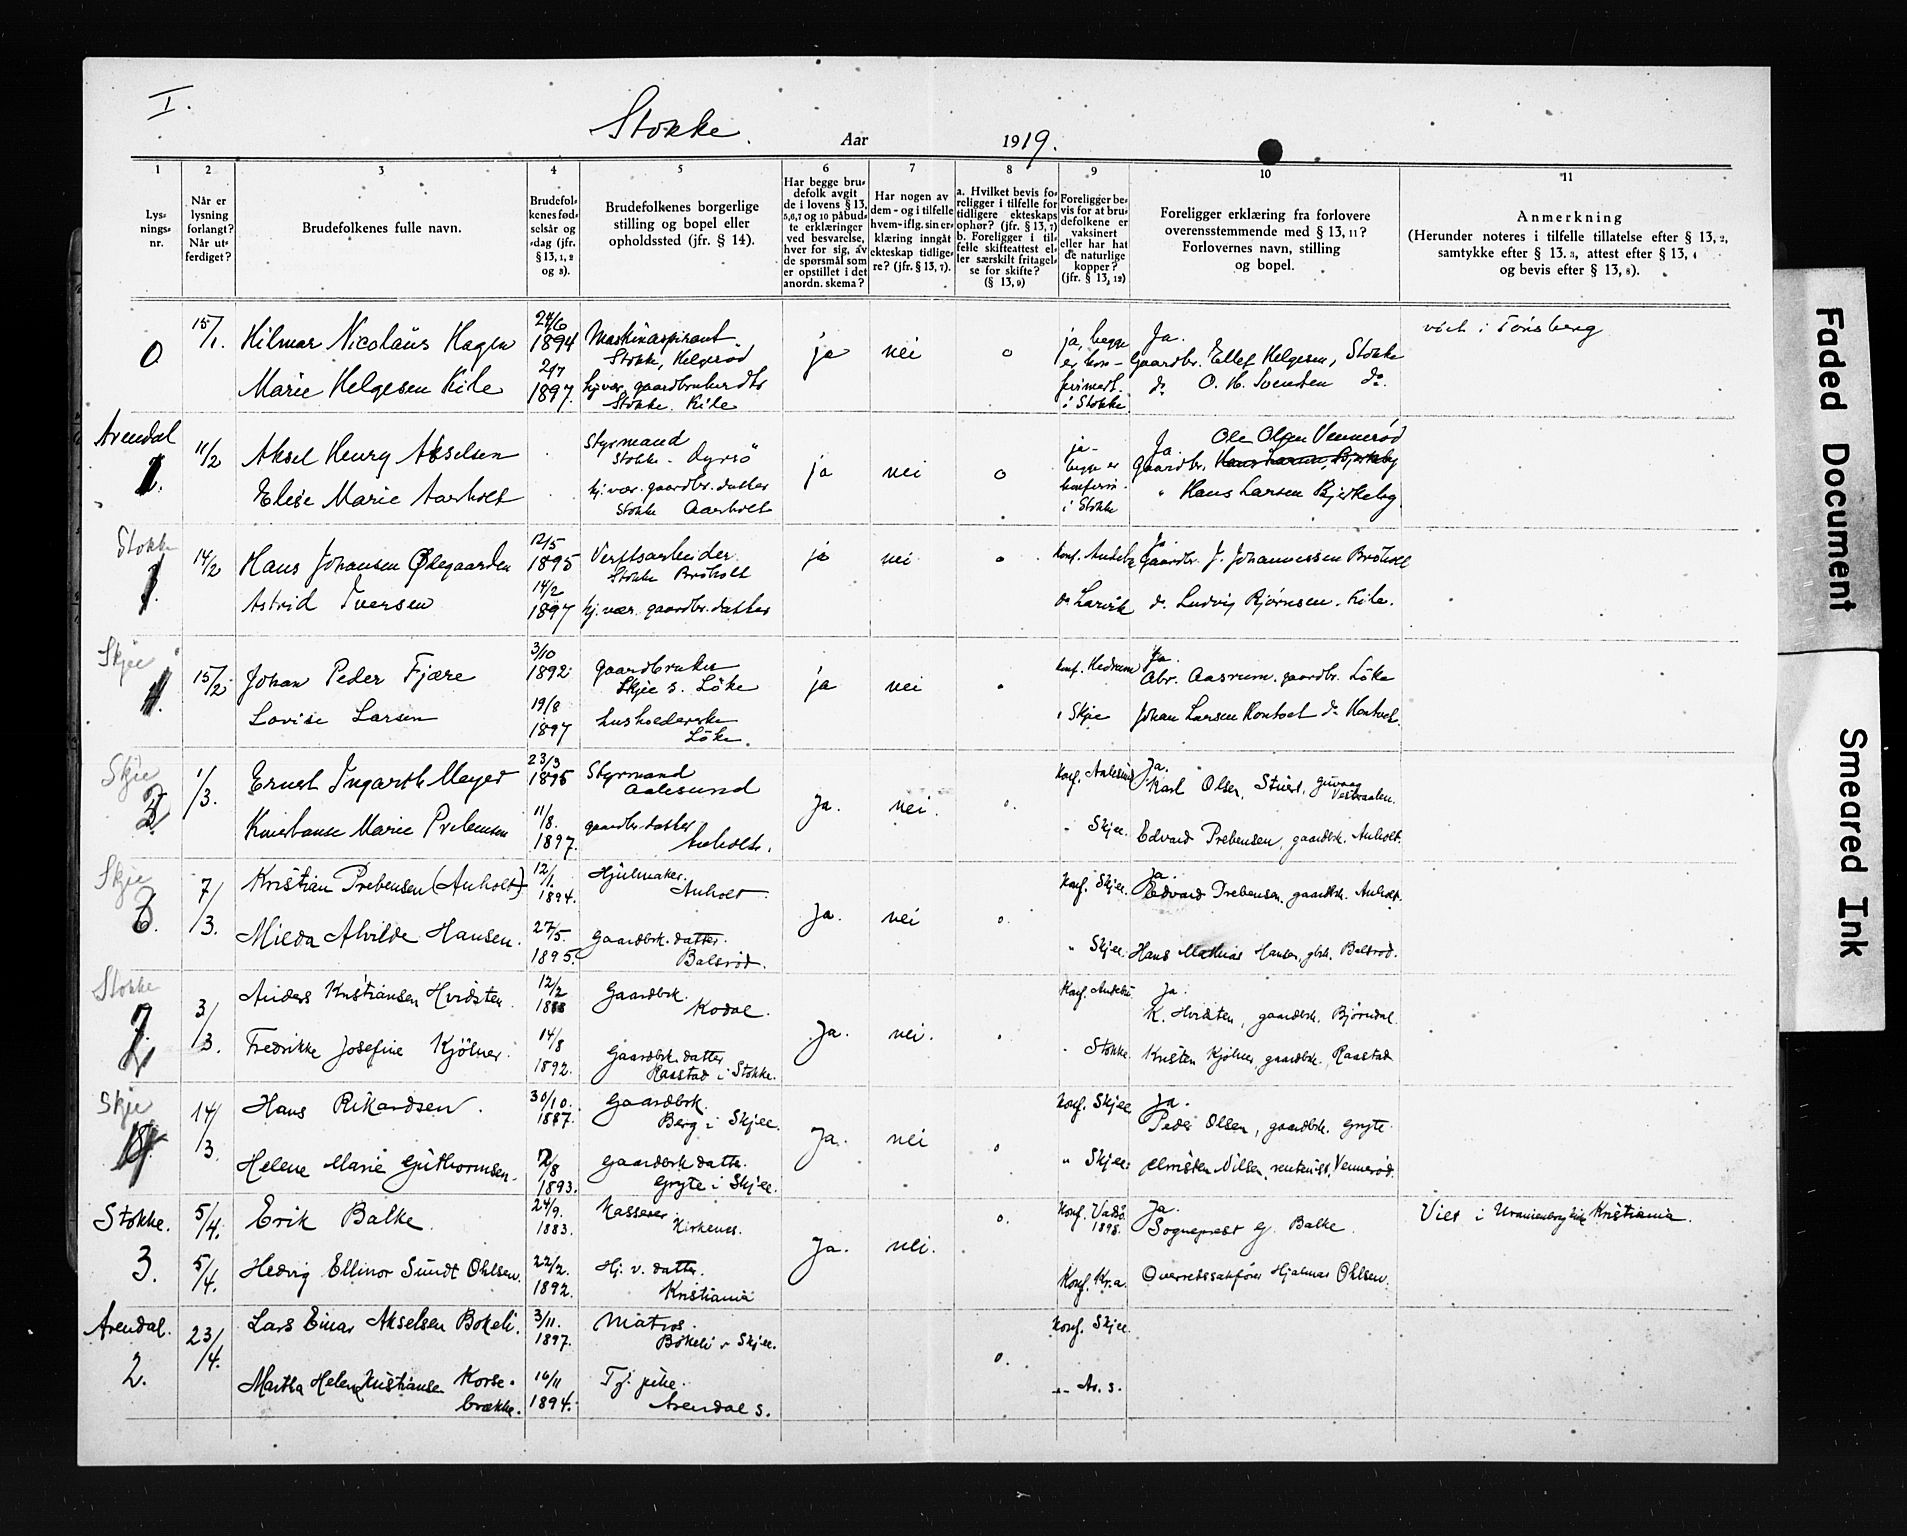 I.
Stokke. Aar 1919.
1 2 3 4 5 6 7 8 9 10 11
Lys-
nings-
nr.
Når er
lysning
forlangt?
Når ut-
ferdiget?
Brudefolkenes fulle navn.
Brudefol-
kenes fød-
selsår og
-dag (jfr.
§ 13, 1, 2
og 3).
Brudefolkenes borgerlige
stilling og bopel eller
opholdssted (jfr. § 14).
Har begge bru-
defolk avgit
de i lovens § 13,
5,6,7 og 10 påbud-
te erklæringer
ved besvarelse,
hver for sig, av
de spørsmål som
er opstillet i det
anordn. skema?
Har nogen av
dem - og i tilfelle
hvem- iflg. sin er-
klæring inngått
ekteskap tidlige-
re? (jfr. § 13, 7).
a. Hvilket bevis fo-
religger i tilfelle for
tidligere ekteskaps
ophør? (jfr. § 13, 7)
b. Foreligger i til-
felle skifteattest el-
ler særskilt fritagel-
se for skifte?
(§ 13, 9)
Foreligger be-
vis for at bru-
defolkene er
vaksinert
eller har hat
de naturlige
kopper?
(jfr. § 13, 12)
Foreligger erklæring fra forlovere
overensstemmende med § 13, 11?
Forlovernes navn, stilling
og bopel.
Anmerkning
(Herunder noteres i tilfelle tillatelse efter § 13, 2,
samtykke efter § 13. 3, attest efter § 13, 4
og bevis efter § 13, 8).
0 15/1. Hilmar Nicolaus Hagen 24/6 1894 Maskinaspirant
Stokke, Helgerød ja nei 0 ja, begge
er kon-
firmert
i Stokke Ja.
Gaardbr. Ellef Helgesen, Stokke
do O. H. Svendsen do. viet i Tønsberg
Marie Helgesen Kile 2/7 1897. hj.vær. gaardbruker dtr
Stokke. Kile
Arendal
1. 11/2 Aksel Henry Akselsen Styrmand
Stokke - Dyrsö ja nei 0 ja-
begge er
konfirm.
i Stokke Ja. Ole Olsen Vennerød
Gaardbr. Hans Larsen, Bjerkeby
" Hans Larsen Bjerkeby
Elise Marie Aarholt hj. vær. gaardbr. datter
Stokke Aarholt
Stokke
1. 14/2 Hans Johansen Ødegaarden 12/5 1895 Verftsarbeider
Stokke Brøholt ja nei 0 Konf. Andebu Ja.
Gaardbr. J. Johannessen Brøholt
Astrid Iversen 14/2 1897 hj. vær. gaardbr. datter do Larvik do. Ludvig Bjørnsen. Kile.
Skjee
15/2 Johan Peder Fjære 3/10 1892 gaardbruker
Skjee s. Löke ja nei Konf. Hedrum Ja.
Abr. Aasrum. gaardbr. Löke
Lovise Larsen 19/8 1897 husholderske
Löke. " Skjee Johan Larsen Hontvet do Hontvet.
Skjee
1/3. Ernst Ingarth Meyer 23/3 1895 Styrmand
Aalesund ja. nei. 0. Konf. Aalesund Ja.
Karl Olsen,
Marie Prebensen 11/8. 1897. gaardbr. datter
Anholt. " Skjee. Edvard Prebensen, gaardbrk. Anholt.
Skjee
6. 7/3. Kristian Prebensen (Anholt) 12/1. 1894. Hjulmaker.
Anholt ja. nei 0. Konf. Skjee. Ja.
Edvard Prebensen, gaardbrk. Anholt.
Milda Alvilde Hansen. 27/5. 1895. gaardbrk. datter.
Balsrød. " Skjee. Hans Mathias Hansen, gbrk. Balsrød.
Stokke
2 3/3. Anders Kristiansen Hvidsten 12/2 Gaardbrk.
Kodal. Ja. nei. Konf. Andebu Ja.
K. Hvidsten, gaardbrk. Bjørndal.
Fredrikke Josefine Kjölner. 14/8 1892. Gaardbrk. datter
Raastad i Stokke. " Stokke. Kristen Kjölner, gaardbrk., Raastad
Skje
14/3. Hans Rikardsen. 30/10. 1887. Gaardbrk.
Berg i Skjee. Ja. nei 0 Konf. Skjee. Ja.
Peder Olsen, gaardbrk. Gryte
Helene Marie Guthormsen. 2/8 1893. Gaardbrk datter.
Gryte i Skjee. " Skjee. Nilsen, rentenist, Vennerød.
Stokke. 5/4. Erik Balke. 24/9. 1883. Kasserer.
Kirkenes. Ja. nei. 0. Konf. Vadsö.
1898. Ja.
Sogneprest G. Balke. Viet i Uranienborg kirke Kristiania.
3. 5/4. Hedvig Ellinor Sundt Ohlsen. 22/2. 1892. Hj. v. datter.
Kristiania Konf. Kr.a. Overretssakfører Hjalmar Ohlsen.
Arendal.
2. 23/4. Lars Einar Akselsen Bøkeli. 3/11. 1897. Matros.
Bökeli i Skjee. 0. Konf. Skjee.
Martha Helene Kristiansen Korse-
brække. 16/11 1894. Tj. pike.
Arendal s. " Ar. s.
Faded Document
Smeared Ink